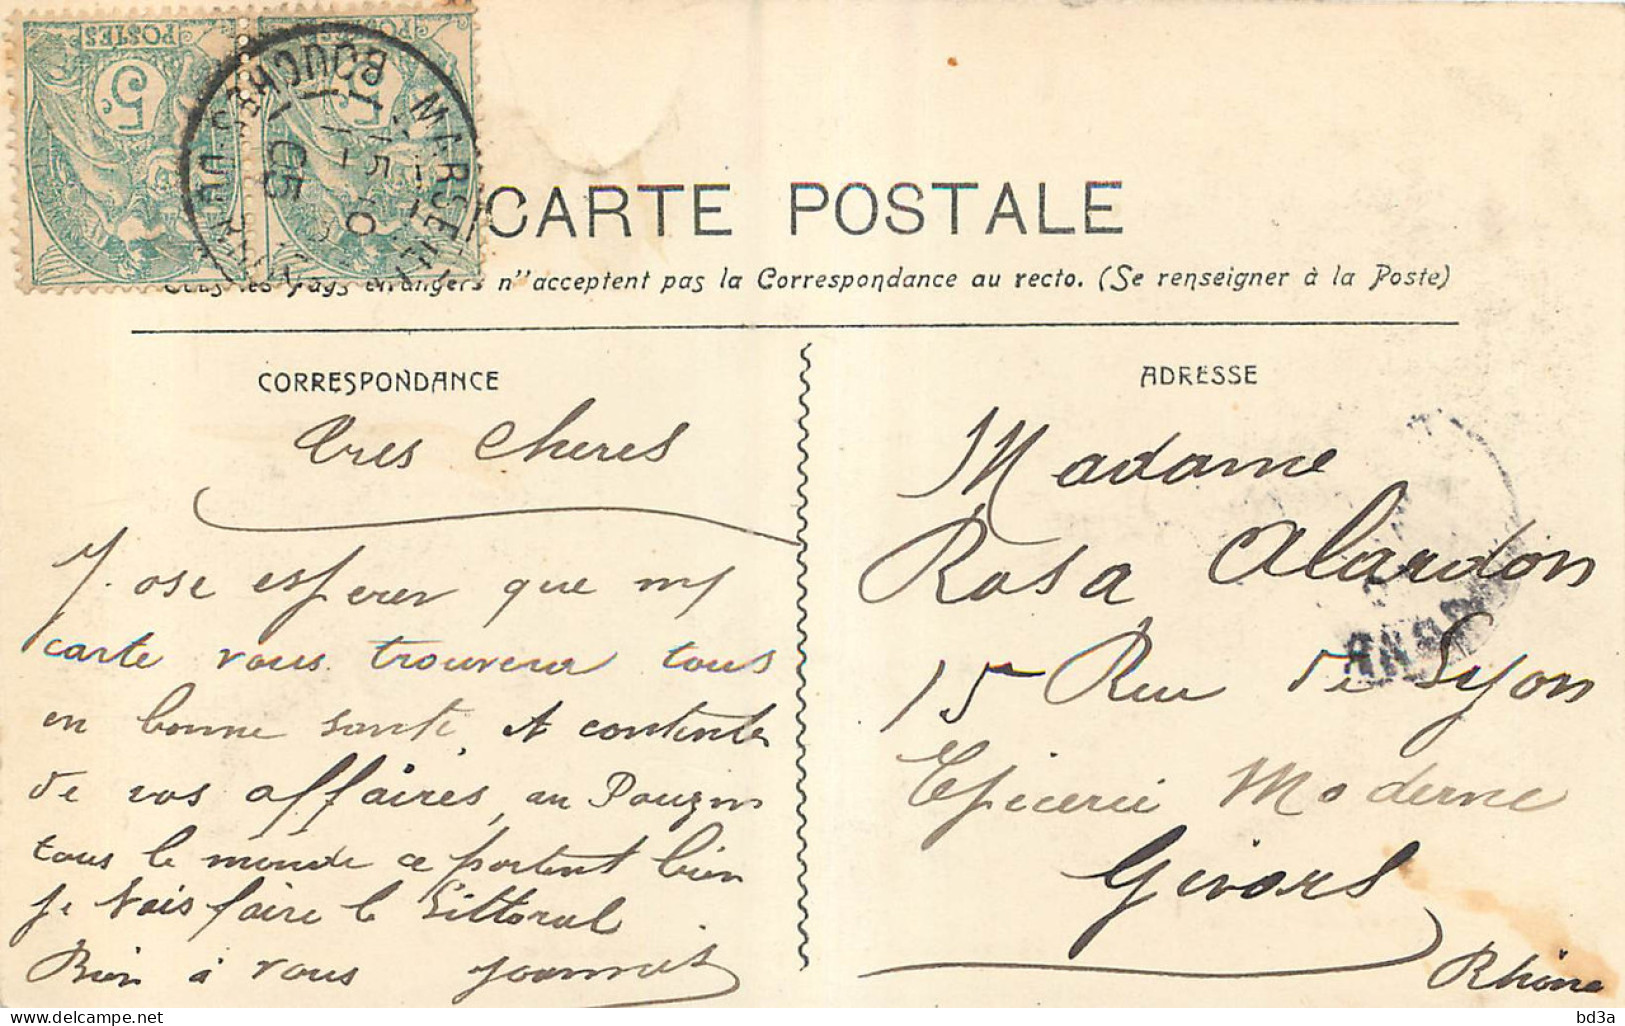 POSTES
5c
POSTES
5c
MARSEILLE
15 10
05
BOUCHES DU RHONE
CARTE POSTALE
Tous les Pays étrangers n'acceptent pas la Correspondance au recto. (Se renseigner à la Poste)
CORRESPONDANCE
Tres Cheres
J. ose esperer que my
carte vous trouverer tous
en bonne sante, et contente
de vos affaires, au Pouzin
tous le monde ce portent bien
je vais faire le Littoral
Bien à vous Joannes
ADRESSE
Madame
Rosa Alardon
15 Rue de Lyon
Epicerie Moderne
Givors
Rhône
www.delcampe.net
bd3a